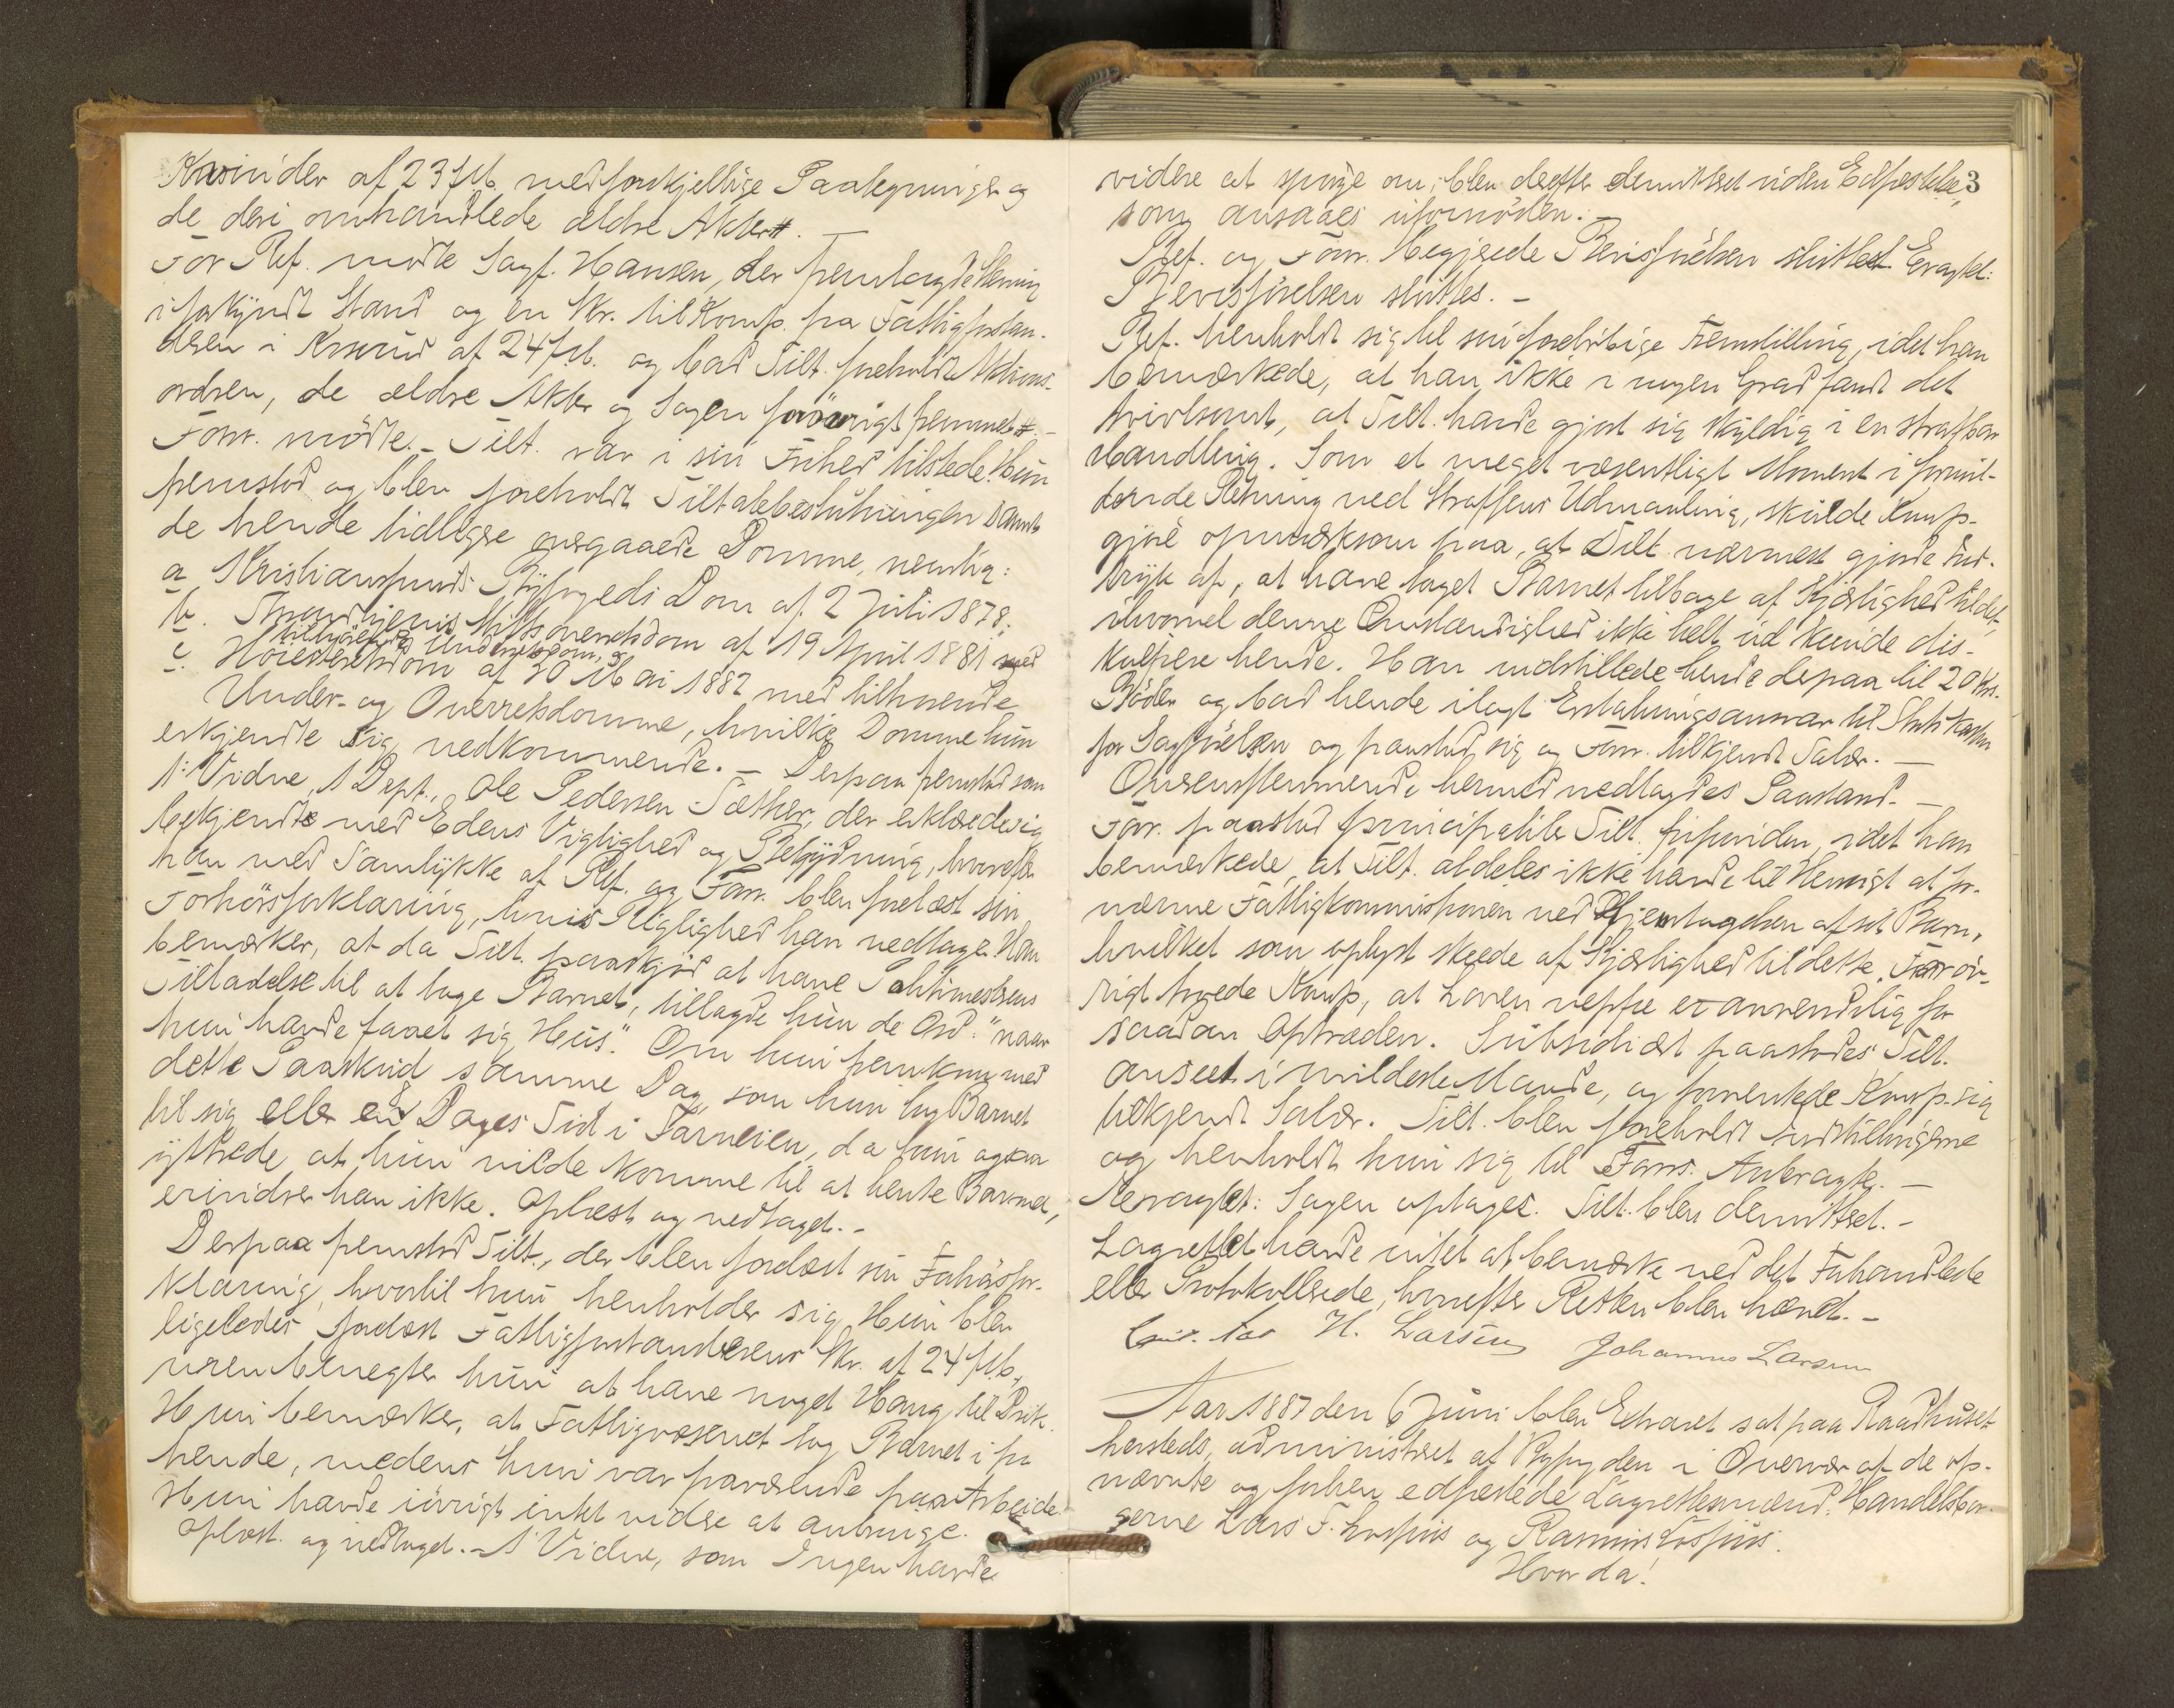 Kvinder af 23 f.M. med forskjellige Paategninger og
de deri omhandlede ældre Akter #. —
For Ref. mødte Sagf. Hansen, der fremlagde Stevning
i forkyndt Stand og en Skr. til Komp. fra Fattigforstan-
deren i Krsund af 24 f.M. og bad Tilt. foreholdt Aktions-
ordren, de ældre Akter og Sagen forøvrigt fremmet #. —
Forsv. mødte. — Tilt. var i sin Frihed tilstede. Hun
fremstod og blev foreholdt Tiltalebeslutningen samt
de hende tidligere overgaaede Domme, nemlig:
a Kristiansunds Byfogeds Dom af 2 Juli 1878.
b. Trondhjems Stiftsoverretsdom af 19 April 1881 med
tilhørende Underretsdom, og
c. Høiesteretsdom af 30 Mai 1882 med tilhørende
Under- og Overretsdomme, hvilke Domme hun
erkjendte sig vedkommende. — Derpaa fremstod som
1: Vidne, 1 Dept., Ole Pedersen Sæther, der erklærede sig
bekjendt med Edens Vigtighed og Betydning, hvorefter
han med Samtykke af Ref. og Forsv. blev forelæst sin
Forhørsforklaring, hvis Rigtighed han vedtager. Han
bemærker, at da Tilt. paaskjød at have Politimesterens
Tilladelse til at tage Barnet, tillagde hun de Ord: "naar
hun havde faaet sig Hus". Om hun fremkom med
dette Paaskud samme Dag, som hun tog Barnet
til sig eller en 8 Dages Tid i Forveien, da hun ogsaa
ytrede at hun vilde komme til at hente Barnet,
erindrer han ikke. Oplæst og vedtaget. —
Derpaa fremstod Tilt., der blev forelæst sin Forhørsfor-
klaring, hvortil hun henholder sig. Hun blev
ligeledes forelæst Fattigforstanderens Skr. af 24 f.M.,
men benegter hun at have noget Hang til Drik.
Hun bemærker, at Fattigvæsenet tog Barnet i fra
hende, medens hun var fraværende paa Arbeide.
Hun havde iøvrigt intet videre at anbringe.
Oplæst og vedtaget. — 1' Vidne, som Ingen havde
3
videre at spørge om, blev derefter demitteret uden Edfæstelse,
som ansaaes ufornøden. —
Ref. og Forsv. begjerede Bevisførelsen sluttet. Eragtet:
Bevisførelsen sluttes. —
Ref. henholdt sig til sin foreløbige Fremstilling, idet han
bemærkede, at han ikke i nogen Grad fandt det
tvivlsomt, at Tilt. havde gjort sig skyldig i en strafbar
Handling. Som et meget væsentligt Moment i formil-
dende Retning ved Straffens Udmaaling, skulde Komp.
gjøre opmerksom paa, at Tilt. nærmest gjorde Ind-
tryk af, at have taget Barnet tilbage af Kjærlighed til det,
ihvorvel denne Omstændighed ikke helt ud kunde dis-
kulpere hende. Han indstillede hende derpaa til 20 Krs.
Bøder og bad hende ilagt Erstatningsansvar til Statskassen
for Sagførelsen og paastod sig og Forsv. tilkjendt Salær. —
Overensstemmende hermed nedlagdes Paastand. —
Forsv. paastod principaliter Tilt. frifunden, idet han
bemærkede, at Tilt. aldeles ikke havde til Hensigt at for-
nærme Fattigkommissionen ved Hjemtagelsen af sit Barn,
hvilket som oplyst skeede af Kjærlighed til dette. Forøv-
rigt troede Komp., at Loven neppe er anvendelig for
saadan Optræden. Subsidiært paastodes Tilt.
anseet i mildeste Maade, og forventede Komp. sig
tilkjendt Salær. Tilt. blev foreholdt Indstillingerne
og henholdt hun sig til Forsvs. Anbragte. —
Eragtet: Sagen optages. Tilt. blev demitteret. —
Lagrettet havde intet at bemærke ved det Forhandlede
eller Protokollerede, hvorefter Retten blev hævet. —
H. Larsen Johannes Larsen
Aar 1887 den 6 Juni blev Extraret sat paa Raadhuset
hersteds, administreret af Byfogden i Overvær af de op-
nævnte og forhen edfæstede Lagrettesmænd: Handelsbor-
gerne Lars F. Lossius og Rasmus Lossius.
Hvor da!